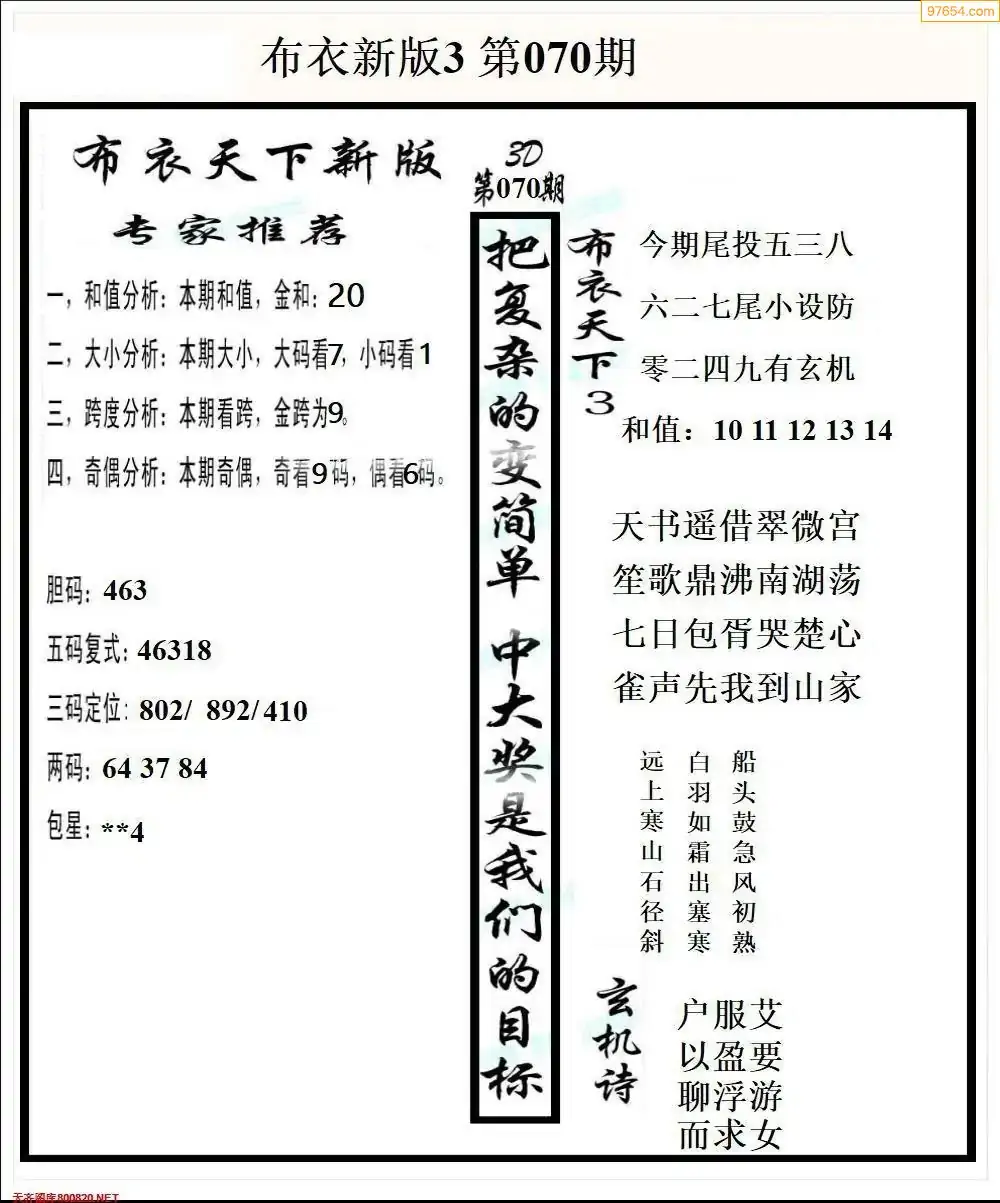 97654.com
布衣新版3 第070期
布衣天下新版
专家推荐
一，和值分析：本期和值，金和：20
二，大小分析：本期大小，大码看7，小码看1
三，跨度分析：本期看跨，金跨为9。
四，奇偶分析：本期奇偶，奇看9码，偶看6码。
胆码：463
五码复式：46318
三码定位：802/ 892/410
两码：64 37 84
包星：**4
3D
第070期
把复杂的变简单 中大奖是我们的目标
布衣天下3
今期尾投五三八
六二七尾小设防
零二四九有玄机
和值：10 11 12 13 14
天书遥借翠微宫
笙歌鼎沸南湖荡
七日包胥哭楚心
雀声先我到山家
远上寒山石径斜
白羽如霜出塞寒
船头鼓急风初熟
玄机诗
户服艾
以盈要
聊浮游
而求女
天齐图库800820.NET